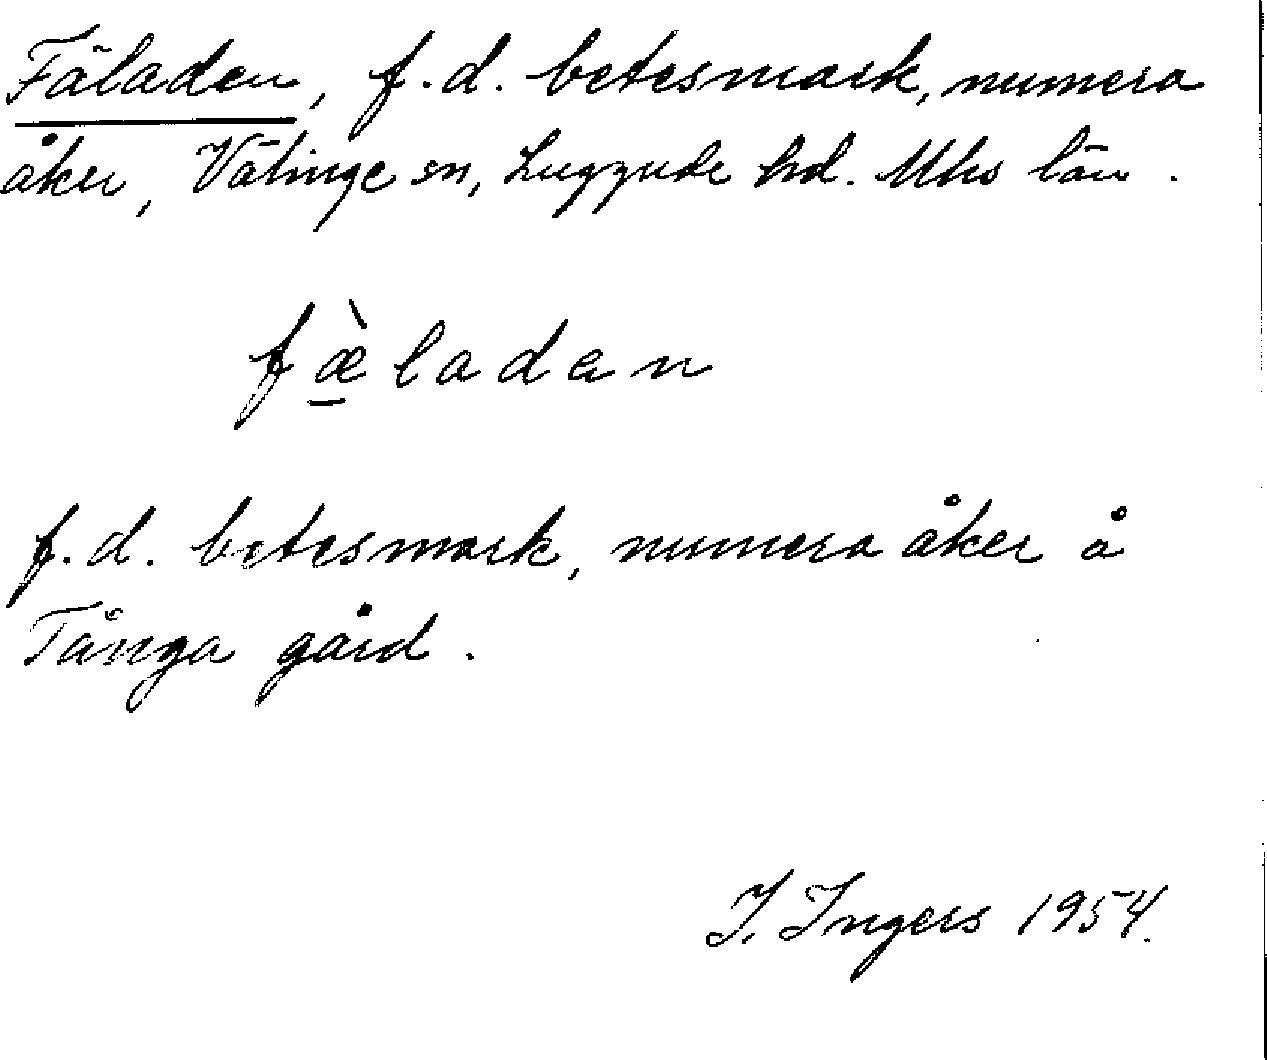 Fäladen, f.d. betesmark, numera
åker, Välinge sn, Luggude hd. Mhs län.
fæ̠̀ladan
f.d. betesmark, numera åker å
Tånga gård.
I. Ingers 1954.